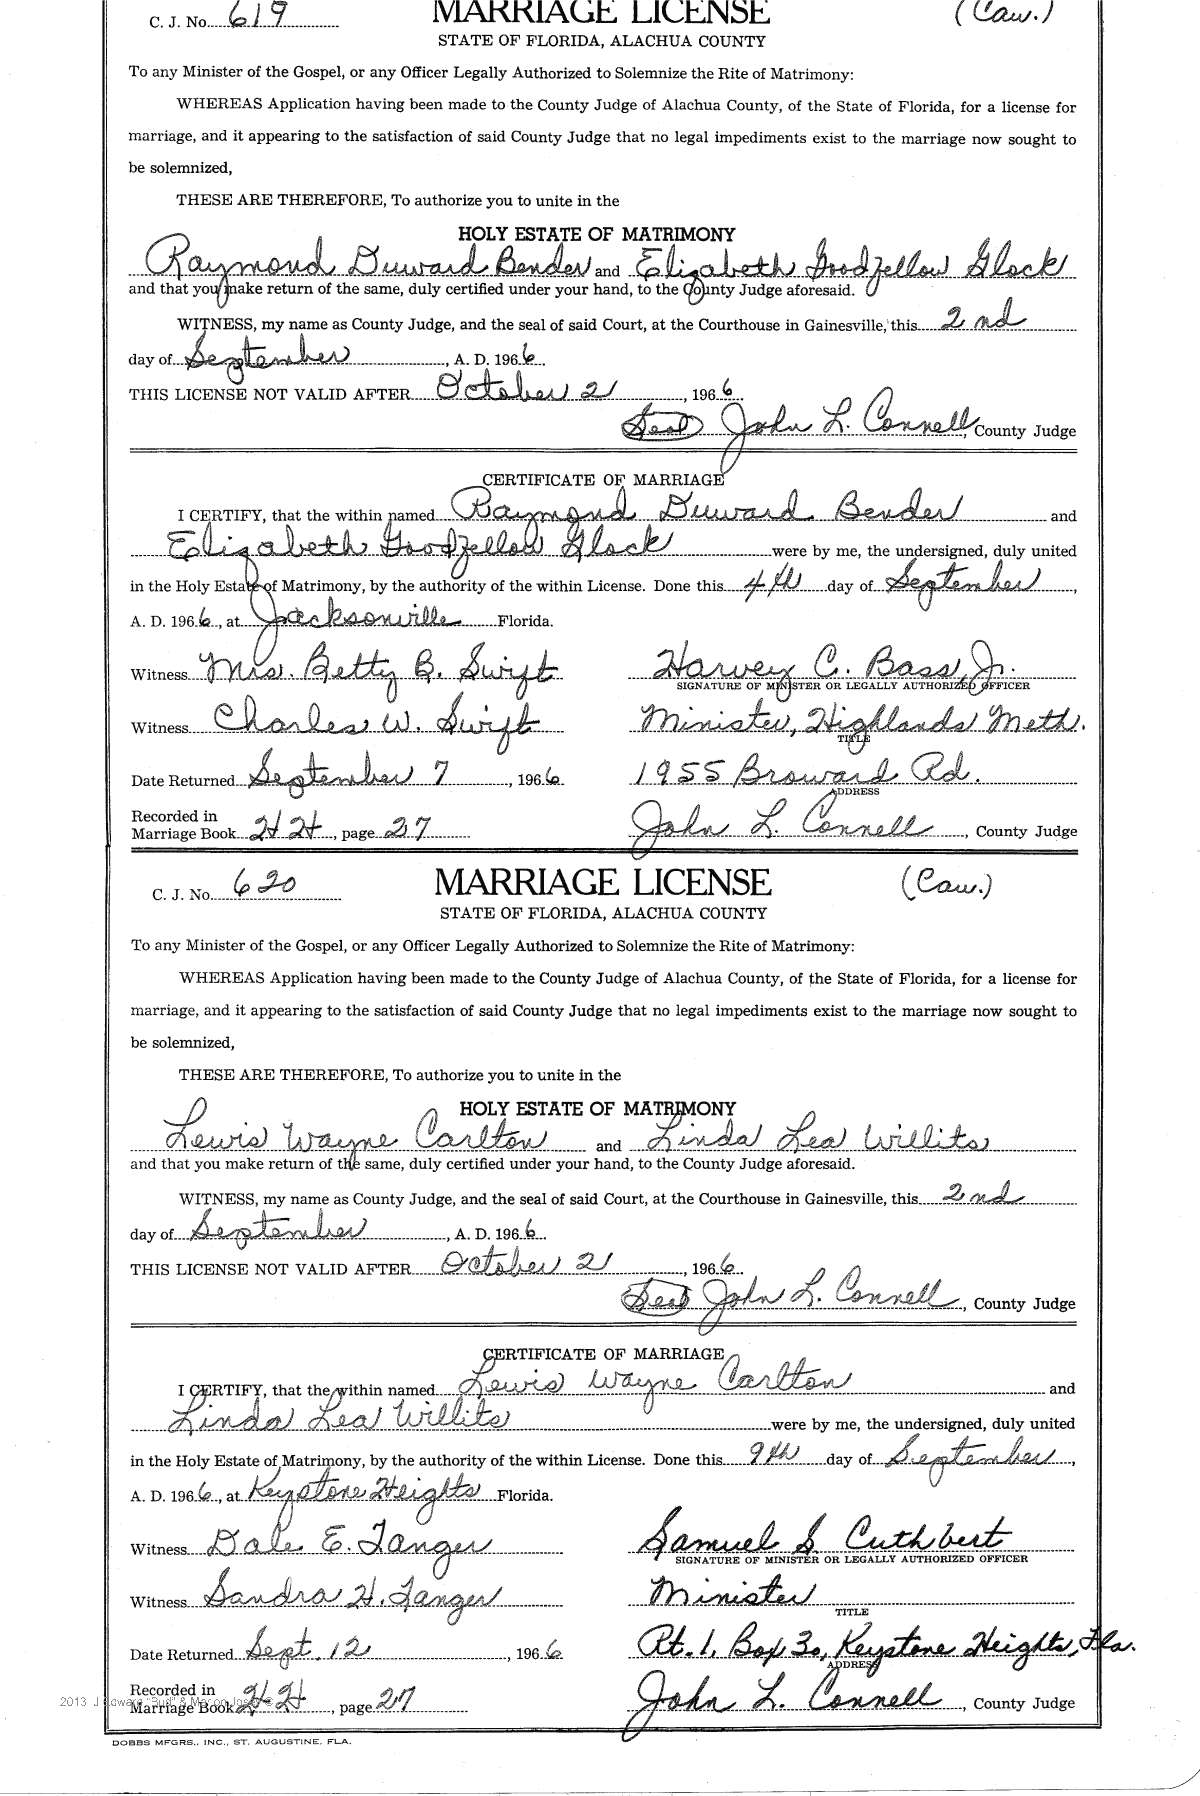 C. J. No. 619 MARRIAGE LICENSE (Caw.)
STATE OF FLORIDA, ALACHUA COUNTY
To any Minister of the Gospel, or any Officer Legally Authorized to Solemnize the Rite of Matrimony:
WHEREAS Application having been made to the County Judge of Alachua County, of the State of Florida, for a license for
marriage, and it appearing to the satisfaction of said County Judge that no legal impediments exist to the marriage now sought to
be solemnized,
THESE ARE THEREFORE, To authorize you to unite in the
HOLY ESTATE OF MATRIMONY
Raymond Duward Bender and Elizabeth Goodfellow Glock
and that you make return of the same, duly certified under your hand, to the County Judge aforesaid.
WITNESS, my name as County Judge, and the seal of said Court, at the Courthouse in Gainesville, this 2nd
day of September, A. D. 1966
THIS LICENSE NOT VALID AFTER October 2, 1966
(Seal) John L. Connell, County Judge
CERTIFICATE OF MARRIAGE
I CERTIFY, that the within named Raymond Duward Bender and
Elizabeth Goodfellow Glock were by me, the undersigned, duly united
in the Holy Estate of Matrimony, by the authority of the within License. Done this 4th day of September,
A. D. 1966, at Jacksonville Florida.
Witness Mrs. Betty B. Swift Harvey C. Bass, Jr.
SIGNATURE OF MINISTER OR LEGALLY AUTHORIZED OFFICER
Witness Charles W. Swift Minister, Highlands Meth.
TITLE
Date Returned September 7, 1966 1955 Broward Rd.
ADDRESS
Recorded in
Marriage Book HH, page 27 John L. Connell, County Judge
C. J. No. 620 MARRIAGE LICENSE (Caw.)
STATE OF FLORIDA, ALACHUA COUNTY
To any Minister of the Gospel, or any Officer Legally Authorized to Solemnize the Rite of Matrimony:
WHEREAS Application having been made to the County Judge of Alachua County, of the State of Florida, for a license for
marriage, and it appearing to the satisfaction of said County Judge that no legal impediments exist to the marriage now sought to
be solemnized,
THESE ARE THEREFORE, To authorize you to unite in the
HOLY ESTATE OF MATRIMONY
Lewis Wayne Carlton and Linda Lea Willits
and that you make return of the same, duly certified under your hand, to the County Judge aforesaid.
WITNESS, my name as County Judge, and the seal of said Court, at the Courthouse in Gainesville, this 2nd
day of September, A. D. 1966
THIS LICENSE NOT VALID AFTER October 2, 1966
(Seal) John L. Connell, County Judge
CERTIFICATE OF MARRIAGE
I CERTIFY, that the within named Lewis Wayne Carlton and
Linda Lea Willits were by me, the undersigned, duly united
in the Holy Estate of Matrimony, by the authority of the within License. Done this 9th day of September,
A. D. 1966, at Keystone Heights Florida.
Witness Dale E. Tanger Samuel S. Cuthbert
SIGNATURE OF MINISTER OR LEGALLY AUTHORIZED OFFICER
Witness Sandra H. Tanger Minister
TITLE
Date Returned Sept. 12, 1966 Rt. 1, Box 30, Keystone Heights, Fla.
ADDRESS
Recorded in
Marriage Book HH, page 27 John L. Connell, County Judge
DOBBS MFGRS., INC., ST. AUGUSTINE, FLA.